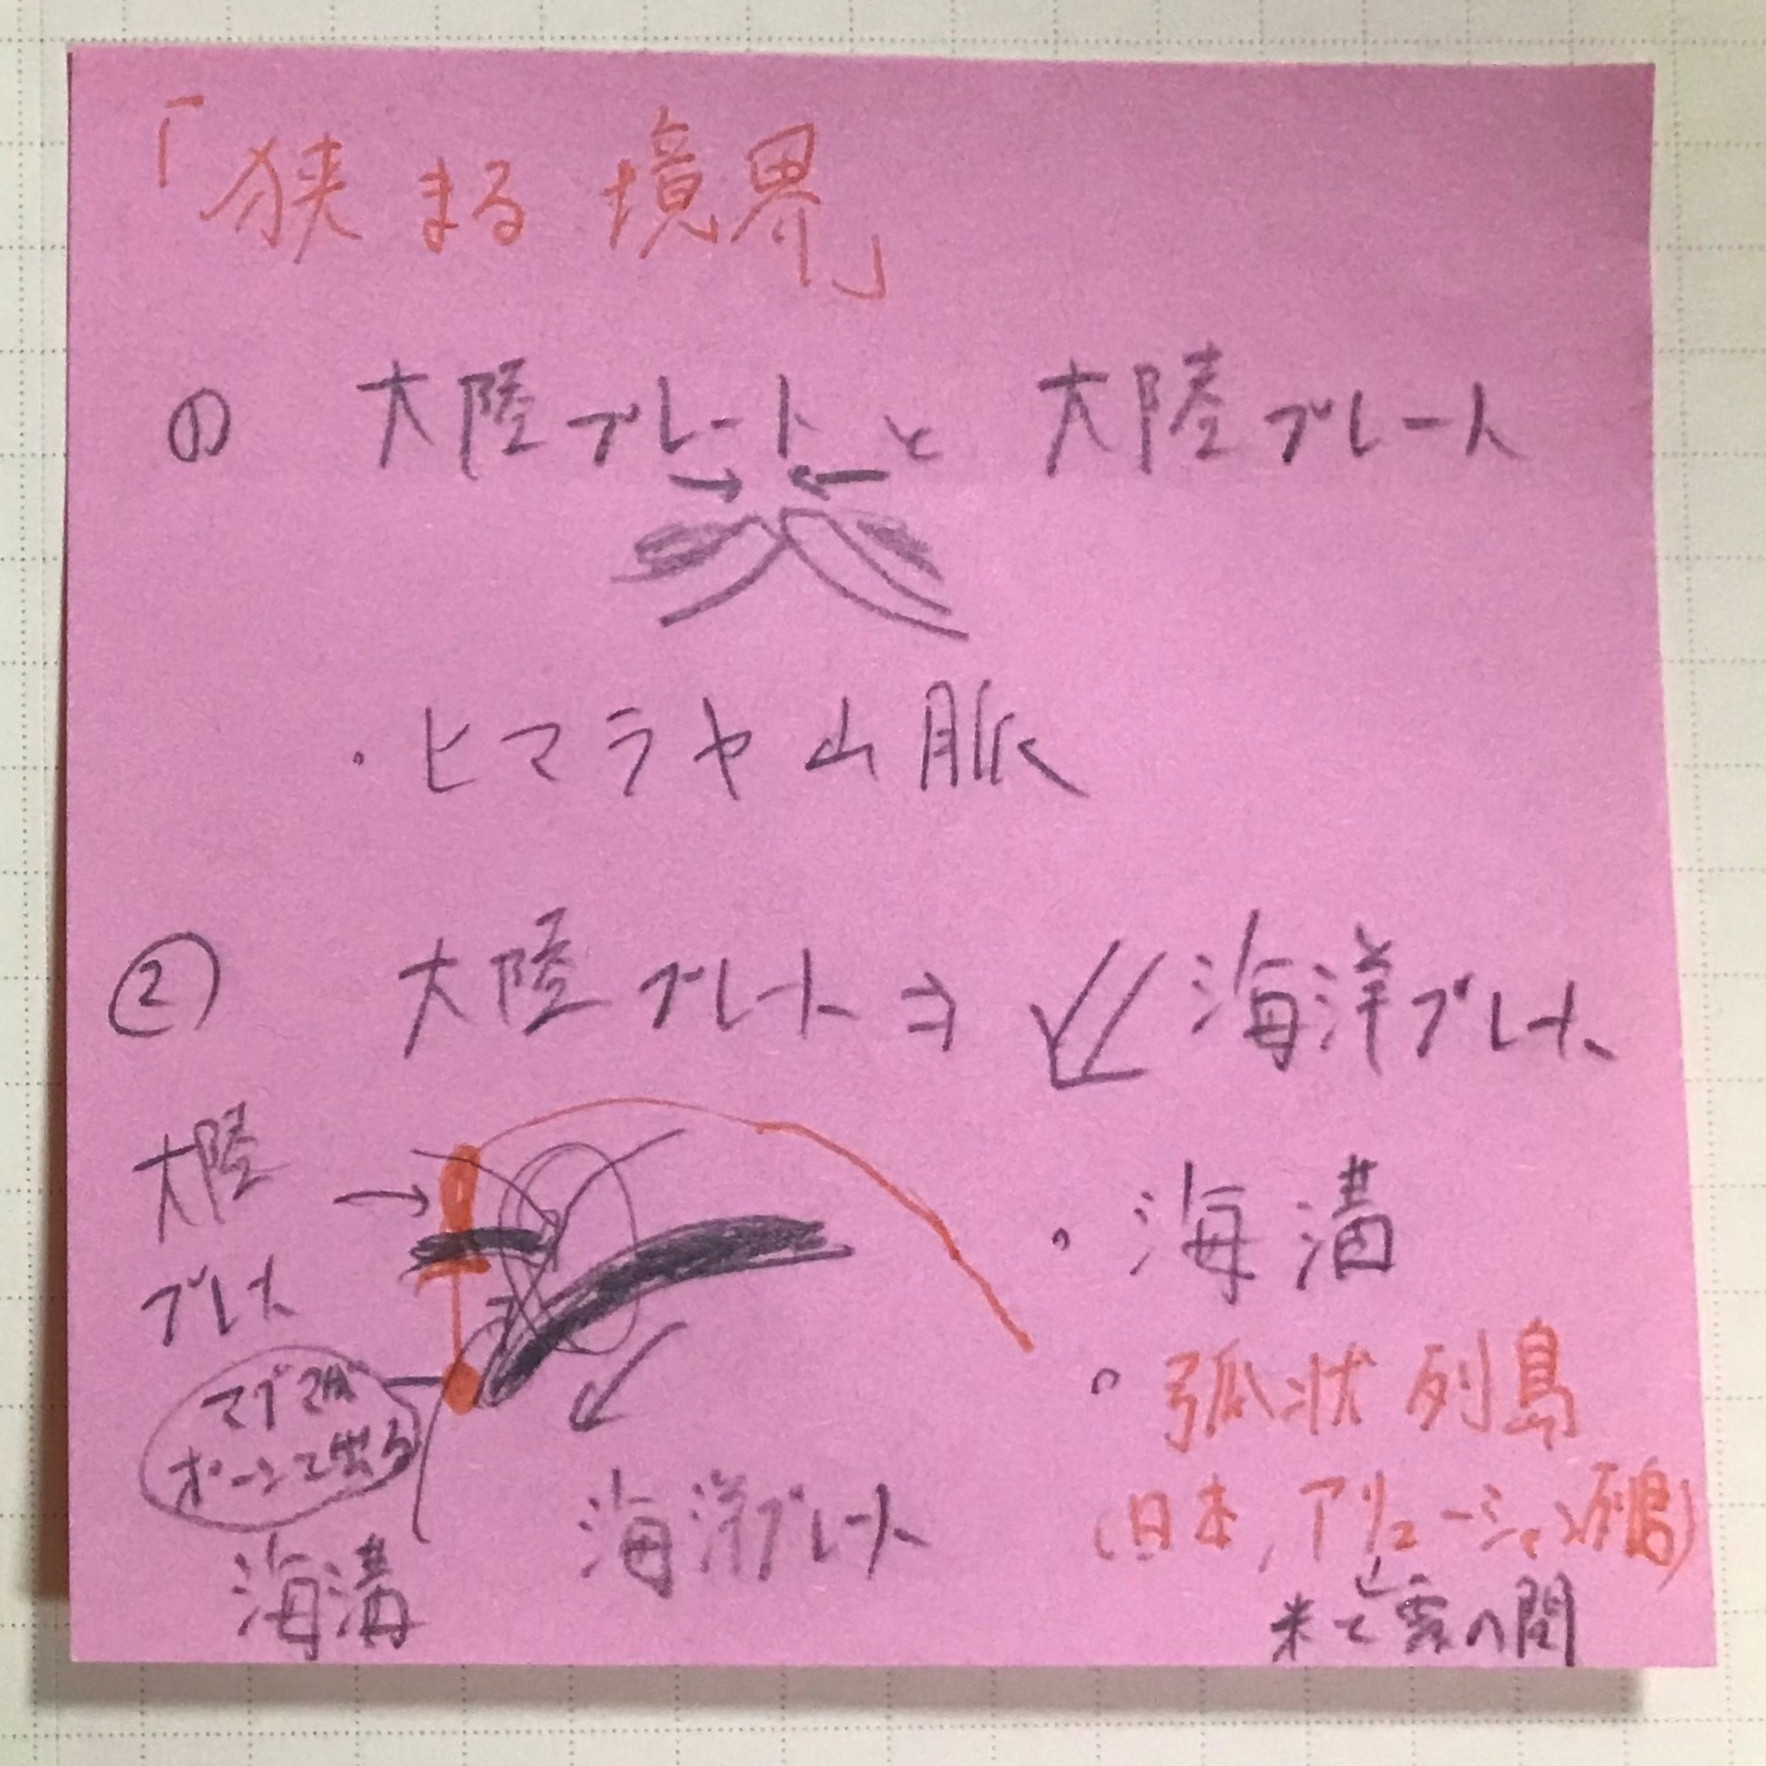 「狭まる境界」
① 大陸プレートと 大陸プレート
・ヒマラヤ山脈
② 大陸プレート⇒ 海洋プレート
大陸
プレート
マグマが
ポーンて出る
海溝
海洋プレート
・海溝
・弧状列島
(日本,アリューシャン列島)
米と露の間